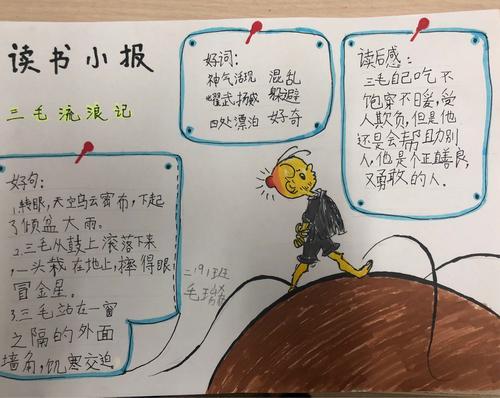 读书小报
三毛流浪记
好词:
神气活现 混乱
耀武扬威 躲避
四处漂泊 好奇
读后感:
三毛自己吃不
饱穿不日暖,受
人欺负,但是他
还是会帮助别
人,他是个正善良
又勇敢的人.
好句:
1.转眼,天空乌云密布,下起
了倾盆大雨。
2.三毛从鼓上滚落下来
,一头栽在地止,摔得眼
冒金星。
3.三毛站在一窗
之隔的外面
墙角,饥寒交迫
二(9)班